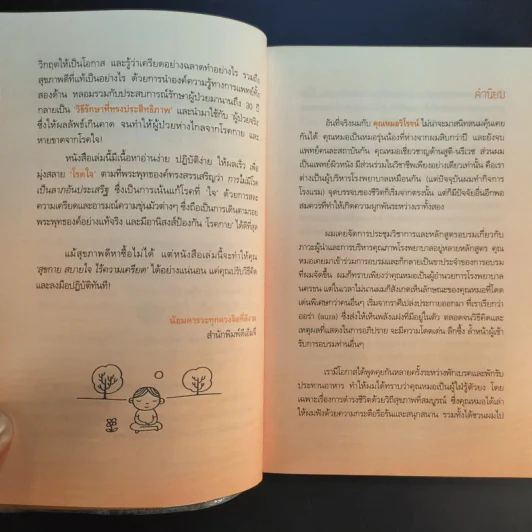 วิกฤตให้เป็นโอกาส และรู้ว่าเครียดอย่างฉลาดทำอย่างไร รวมถึง
สุขภาพดีที่แท้เป็นอย่างไร ด้วยการนำองค์ความรู้ทางการแพทย์ทั้ง
สองด้าน หลอมรวมกับประสบการณ์รักษาผู้ป่วยมานานถึง 30 ปี
กลายเป็น 'วิธีรักษาที่ทรงประสิทธิภาพ' และนำมาใช้กับ 'ผู้ป่วยจริง'
ซึ่งให้ผลลัพธ์เกินคาด จนทำให้ผู้ป่วยห่างไกลจากโรคกาย และ
หายขาดจากโรคใจ!
หนังสือเล่มนี้มีเนื้อหาอ่านง่าย ปฏิบัติง่าย ให้ผลเร็ว เพื่อ
มุ่งสลาย 'โรคใจ' ตามที่พระพุทธองค์ทรงสรรเสริญว่า การไม่มีโรค
เป็นลาภอันประเสริฐ ซึ่งเป็นการเน้นแก้โรคที่ 'ใจ' ด้วยการลด
ความเครียดและอารมณ์ความขุ่นมัวต่างๆ ซึ่งถือเป็นการเดินตามรอย
พระพุทธองค์อย่างแท้จริง และมีอานิสงส์ป้องกัน 'โรคกาย' ได้ดีที่สุด
แม้สุขภาพดีหาซื้อไม่ได้ แต่หนังสือเล่มนี้จะทำให้คุณ
'สุขกาย สบายใจ ไร้ความเครียด' ได้อย่างแน่นอน แค่คุณปรับวิธีคิด
และลงมือปฏิบัติทันที!
น้อมคารวะทุกดวงจิตที่ดีงาม
สำนักพิมพ์ดีเอ็มจี
คำนิยม
อันที่จริงผมกับ คุณหมอวิโรจน์ ไม่น่าจะมาสนิทสนมคุ้นเคย
กันได้ คุณหมอเป็นหมอรุ่นน้องที่ห่างจากผมสิบกว่าปี และยังจบ
แพทย์คนละสถาบันกัน คุณหมอเชี่ยวชาญด้านสูติ-นรีเวช ส่วนผม
เป็นแพทย์ผิวหนัง มีส่วนร่วมในวิชาชีพเพียงอย่างเดียวเท่านั้น คือเรา
ต่างเป็นผู้บริหารโรงพยาบาลเหมือนกัน (แต่ปัจจุบันผมทำกิจการ
โรงแรม) จุดบรรจบของชีวิตก็เริ่มจากตรงนั้น แต่ก็มีปัจจัยอื่นอีกพอ
สมควรที่ทำให้เกิดความผูกพันระหว่างเราทั้งสอง
ผมเคยจัดการประชุมวิชาการและหลักสูตรอบรมเกี่ยวกับ
ภาวะผู้นำและการบริหารคุณภาพโรงพยาบาลอยู่หลายหลักสูตร คุณ
หมอเคยมาเข้าร่วมการอบรมและก็กลายเป็นขาประจำของการอบรม
ที่ผมจัดขึ้น ผมก็ทราบเพียงว่าคุณหมอเป็นผู้อำนวยการโรงพยาบาล
นครธน แต่ในเวลาไม่นานผมก็สังเกตเห็นลักษณะของคุณหมอที่โดด
เด่นพิเศษกว่าคนอื่นๆ เริ่มจากราศีเปล่งประกายออกมา ที่เราเรียกว่า
ออร่า (aura) ซึ่งส่งให้เห็นพลังแฝงที่มีอยู่ในตัว ตลอดจนวิธีคิดและ
เหตุผลที่แสดงในการอภิปราย จะมีความโดดเด่น ลึกซึ้ง ล้ำหน้าผู้เข้า
รับการอบรมท่านอื่นๆ
เรามีโอกาสได้พูดคุยกันหลายครั้งระหว่างพักเบรคและพักรับ
ประทานอาหาร ทำให้ผมได้ทราบว่าคุณหมอเป็นผู้ใฝ่รู้ตัวยง โดย
เฉพาะเรื่องการดำรงชีวิตด้วยวิถีสุขภาพที่สมบูรณ์ ซึ่งคุณหมอได้เล่า
ให้ผมฟังด้วยความกระตือรือร้นและสนุกสนาน รวมทั้งได้ชวนผมไป